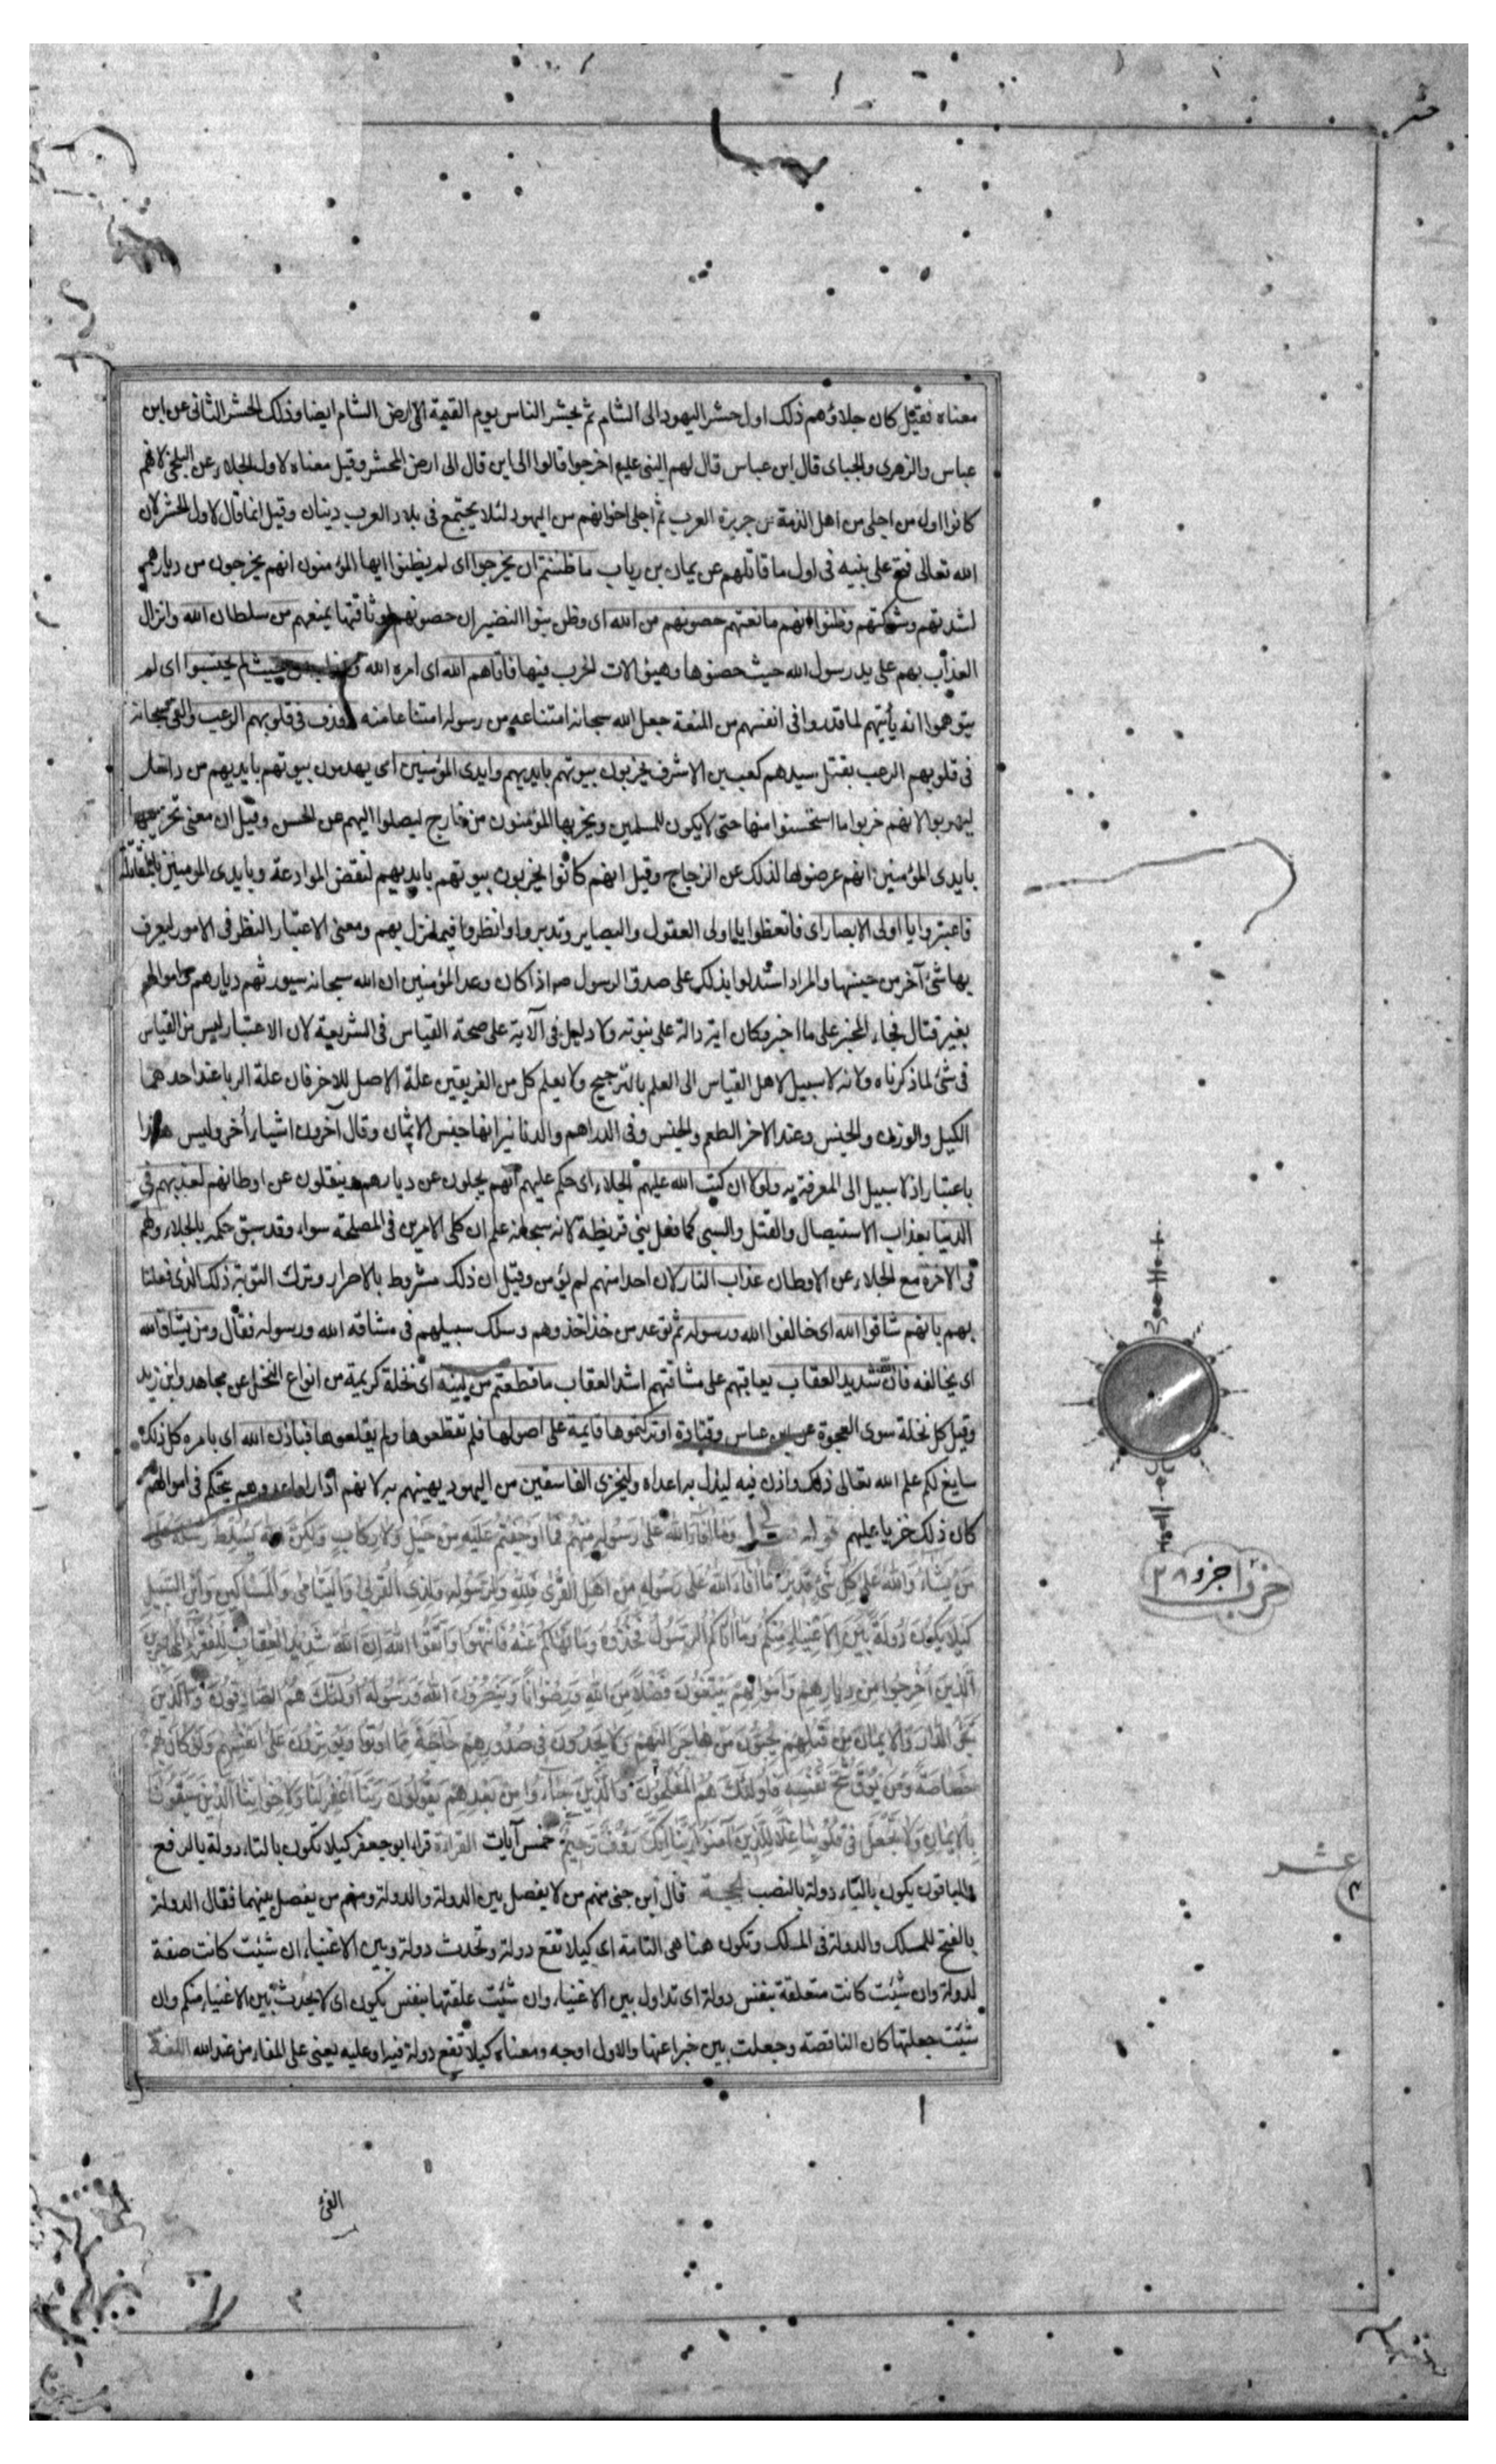 معناه فقيل كان جلاؤهم ذلك اول حشر اليهود الى الشام ثم يحشر الناس يوم القيمة الى ارض الشام ايضا وذلك الحشر الثانى عن ابن
عباس والزهرى والجباى قال ابن عباس قال لهم النبى عليع اخرجوا قالوا الى اين قال الى ارض المحشر وقيل معناه لاول الجلاء عن البلخى لانهم
كانوا اول من اجلى من اهل الذمة من جزيرة العرب ثم اجلى اخوانهم من اليهود لئلا يجتمع فى بلاد العرب دينان وقيل انما قال لاول الحشر لان
الله تعالى فتح على نبيه فى اول ما قاتلهم عن يمان بن رياب ما ظننتم ان يخرجوا اى لم يظنوا ايها المؤمنون انهم يخرجون من ديارهم
لشدتهم وشوكتهم وظنوا انهم مانعتهم حصونهم من الله اى وظن بنوا النضير ان حصونهم لوثاقتها يمنعهم من سلطان الله وانزال
العذاب بهم على يد رسول الله حيث حصنوها وهيؤا الات الحرب فيها فاتاهم الله اى امره الله من حيث لم يحتسبوا اى لم
يتوهموا انه يأتيهم لما قدروا فى انفسهم من المنعة جعل الله سبحانه امتناعهم من رسوله امتناعا منه وقذف فى قلوبهم الرعب والقى سبحانه
فى قلوبهم الرعب بقتل سيدهم كعب بن الاشرف يخربون بيوتهم بايديهم وايدى المؤمنين اى يهدمون بيوتهم بايديهم من داخل
ليهربوا لانهم خربوا ما استحسنوا منها حتى لا يكون للمسلمين ويخربها المؤمنون من خارج ليصلوا اليهم عن الحسن وقيل ان معنى تخريبها
بايدى المؤمنين انهم عرضوها لذلك عن الزجاج وقيل انهم كانوا يخربون بيوتهم بايديهم لنقض الموادعة وبايدى المومنين بالمقاتلة
فاعتبروا يا اولى الابصار اى فاتعظوا يا اولى العقول والبصاير وتدبروا وانظروا فيما نزل بهم ومعنى الاعتبار النظر فى الامور ليعرف
بها شئ آخر من جنسها والمراد استدلوا بذلك على صدق الرسول ص اذا كان وعد المؤمنين ان الله سبحانه سيورثهم ديارهم واموالهم
بغير قتال فجاء المخبر على ما اخبر فكان اية دالة على نبوته ولا دليل فى الآية على صحة القياس فى الشريعة لان الاعتبار ليس من القياس
فى شئ لما ذكرناه ولانه لا سبيل لاهل القياس الى العلم بالترجيح ولا يعلم كل من الفريقين علة الاصل للاخر فان علة الربا عند احدهما
الكيل والوزن والجنس وعند الاخر الطعم والجنس وفى الدراهم والدنانير انها جنس الاثمان وقال آخرون اشياء أخر وليس هذا
باعتبار اذ لا سبيل الى المعرفة به ولولا ان كتب الله عليهم الجلاء اى حكم عليهم انهم يجلون عن ديارهم وينقلون عن اوطانهم لعذبهم فى
الدنيا بعذاب الاستيصال والقتل والسبى كما فعل ببنى قريظة لانه سبحانه علم ان كلى الامرين فى المصلحة سواء وقد سبق حكمه بالجلاء ولهم
فى الاخرة مع الجلاء عن الاوطان عذاب النار لان احدا منهم لم يؤمن وقيل ان ذلك مشروط بالاصرار وترك التوبة ذلك الذى فعلنا
بهم بانهم شاقوا الله اى خالفوا الله ورسوله ثم توعد من حذا حذوهم وسلك سبيلهم فى مشاقة الله ورسوله فقال ومن يشاق الله
اى يخالفه فان الله شديد العقاب يعاقبهم على مشاقتهم اشد العقاب ما قطعتم من لينة اى نخلة كريمة من انواع النخل عن مجاهد وابن زيد
وقيل كل نخلة سوى العجوة عن ابن عباس وقتادة او تركتموها قايمة على اصولها فلم تقطعوها ولم يقلعوها فباذن الله اى بامره كل ذلك
سايغ لكم علم الله تعالى ذلك واذن فيه ليذل به اعداه وليخزى الفاسقين من اليهود يهينهم به لانهم اذا راوا عدوهم يتحكم فى اموالهم
كان ذلك خزيا عليهم قوله وَمَا أَفَآءَ اللهُ عَلَى رَسُولِهِ مِنْهُمْ فَمَا أَوْجَفْتُمْ عَلَيْهِ مِنْ خَيْلٍ وَلَا رِكَابٍ وَلَكِنَّ اللهَ يُسَلِّطُ رُسُلَهُ عَلَى
مَنْ يَشَاءُ وَاللهُ عَلَى كُلِّ شَئٍ قَدِيرٌ مَا أَفَاءَ اللهُ عَلَى رَسُولِهِ مِنْ أَهْلِ الْقُرَى فَلِلَّهِ وَلِلرَّسُولِ وَلِذِى الْقُرْبَى وَالْيَتَامَى وَالْمَسَاكِينِ وَابْنِ السَّبِيلِ
كَيْلَا يَكُونَ دُولَةً بَيْنَ الْأَغْنِيَاءِ مِنْكُمْ وَمَا آتَاكُمُ الرَّسُولُ فَخُذُوهُ وَمَا نَهَاكُمْ عَنْهُ فَانْتَهُوا وَاتَّقُوا اللهَ إِنَّ اللهَ شَدِيدُ الْعِقَابِ لِلْفُقَرَاءِ الْمُهَاجِرِينَ
الَّذِينَ أُخْرِجُوا مِنْ دِيَارِهِمْ وَأَمْوَالِهِمْ يَبْتَغُونَ فَضْلًا مِنَ اللهِ وَرِضْوَانًا وَيَنْصُرُونَ اللهَ وَرَسُولَهُ أُولَئِكَ هُمُ الصَّادِقُونَ وَالَّذِينَ
تَبَوَّءُ الدَّارَ وَالْإِيمَانَ مِنْ قَبْلِهِمْ يُحِبُّونَ مَنْ هَاجَرَ إِلَيْهِمْ وَلَا يَجِدُونَ فِى صُدُورِهِمْ حَاجَةً مِمَّا أُوتُوا وَيُؤْثِرُونَ عَلَى أَنْفُسِهِمْ وَلَوْ كَانَ بِهِمْ
خَصَاصَةٌ وَمَنْ يُوقَ شُحَّ نَفْسِهِ فَأُولَئِكَ هُمُ الْمُفْلِحُونَ وَالَّذِينَ جَآءُوا مِنْ بَعْدِهِمْ يَقُولُونَ رَبَّنَا اغْفِرْ لَنَا وَلِإِخْوَانِنَا الَّذِينَ سَبَقُونَا
بِالْإِيمَانِ وَلَا تَجْعَلْ فِى قُلُوبِنَا غِلًّا لِلَّذِينَ آمَنُوا رَبَّنَا إِنَّكَ رَؤُفٌ رَحِيمٌ خمس آيات القراءة قراء ابو جعفر كيلا تكون بالتاء دولة بالرفع
والباقون يكون بالياء دولة بالنصب الحجة قال ابن جنى منهم من لا يفصل بين الدولة والدولة ومنهم من يفصل بينهما فقال الدولة
بالفتح للملك والدولة فى الملك وتكون هنا هى التامة اى كيلا تقع دولة وتحدث دولة وبين الاغنياء ان شئت كانت صفة
لدولة وان شئت كانت متعلقة بنفس دولة اى تداول بين الاغنياء وان شئت علقتها بنفس يكون اى لا يحدث بين الاغنياء منكم وان
شئت جعلتها كان الناقصة وجعلت بين خبرا عنها والاول اوجه ومعناه كيلا تقع دولة فيه او عليه يعنى على المفاء من عند الله اللغة
حزب ا جزو ٢٨
عشر
الفئ